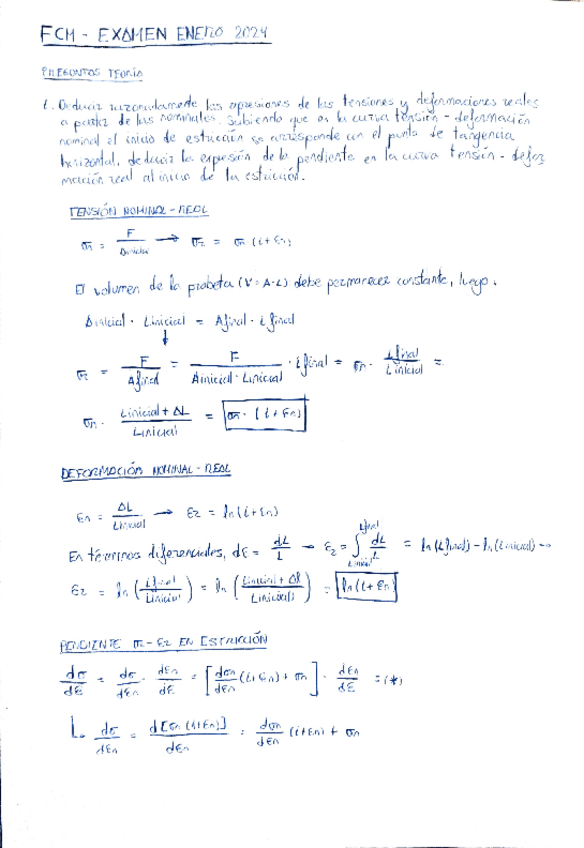 FCM - EXAMEN ENERO 2024
PREGUNTAS TEORÍA
1. Deducir razonadamente las expresiones de las tensiones y deformaciones reales
a partir de las nominales. Sabiendo que en la curva tensión - deformación
nominal el inicio de estricción se corresponde con el punto de tangencia
horizontal, deducir la expresión de la pendiente en la curva tensión - defor
mación real al inicio de la estricción.
TENSIÓN NOMINAL - REAL
σn = F / Ainicial → σr = σn (1+εn)
El volumen de la probeta (V = A·L) debe permanecer constante, luego.
Ainicial · Linicial = Afinal · Lfinal
↓
σr = F / Afinal = F / (Ainicial · Linicial) · Lfinal = σn · Lfinal / Linicial =
σn · (Linicial + ΔL) / Linicial = σn · (1+εn)
DEFORMACIÓN NOMINAL - REAL
εn = ΔL / Linicial → εr = ln(1+εn)
En términos diferenciales, dε = dL / L → εr = ∫ Linicial Lfinal dL / L = ln(Lfinal) - ln(Linicial) →
εr = ln (Lfinal / Linicial) = ln ((Linicial + Δl) / Linicial) = ln(1+εn)
PENDIENTE σr - εr EN ESTRICCIÓN
dσ/dε = dσ/dεn · dεn/dε = [dσn/dεn (1+εn) + σn] · dεn/dε = (*)
↳ dσ/dεn = d[σn (1+εn)]/dεn = dσn/dεn (1+εn) + σn